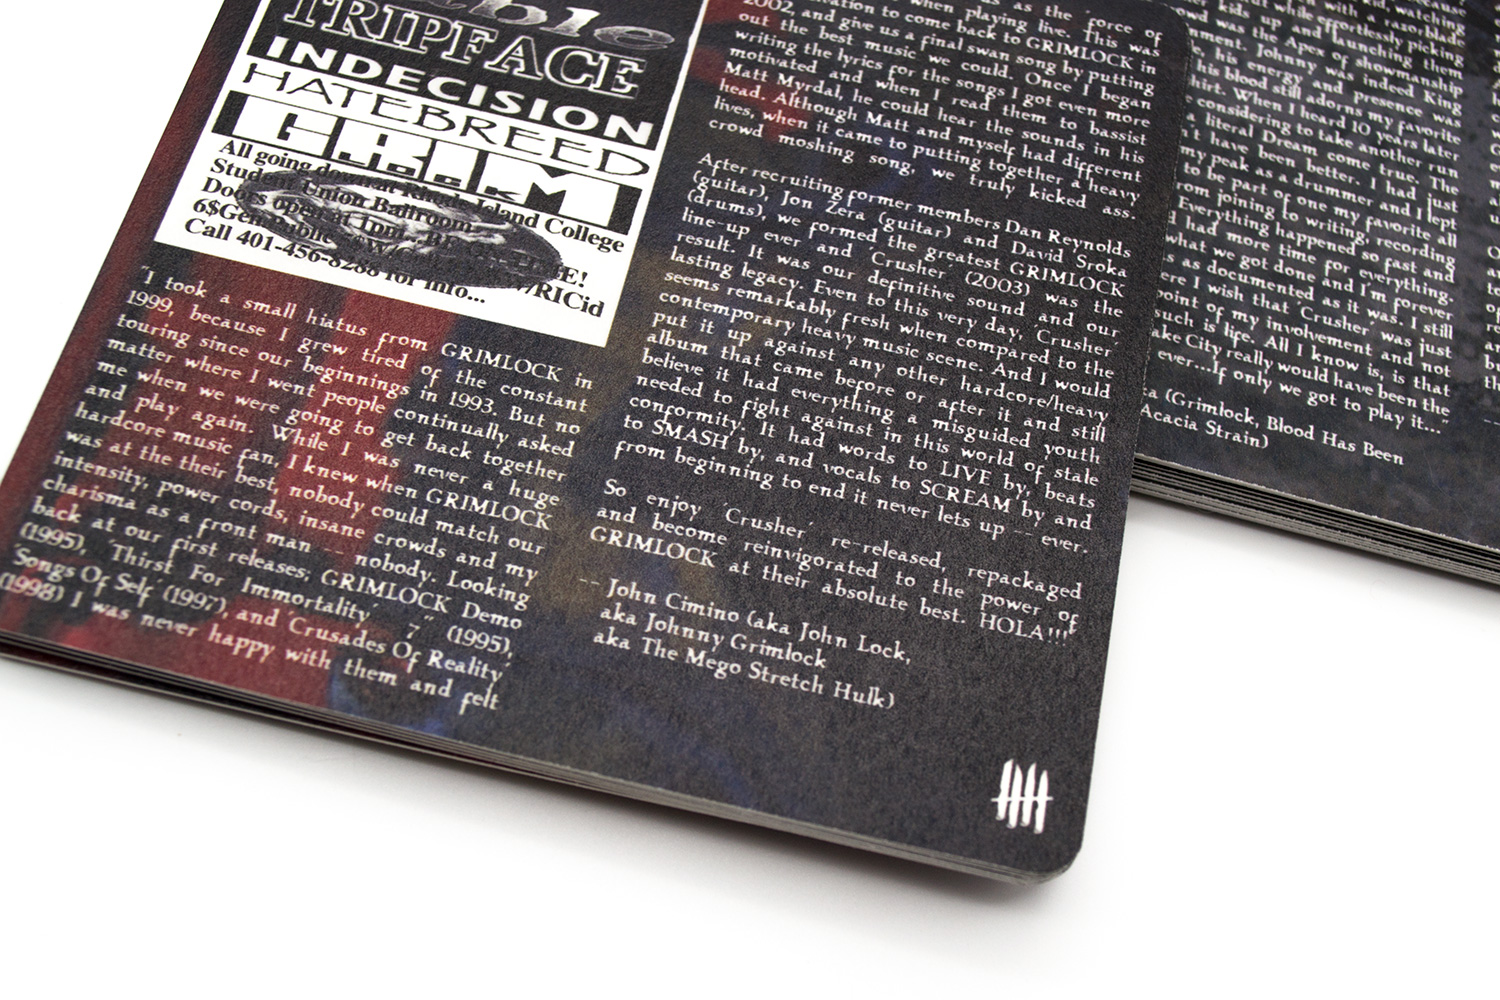 TRIPFACE
INDECISION
HATEBREED
GRIM
All going down at Rhode Island College
Student Union Ballroom
Doors open at 1pm - BE
6$General Public
Call 401-456-8288 for info...
"I took a small hiatus from GRIMLOCK in
1999, because I grew tired of the constant
touring since our beginnings in 1993. But no
matter where I went people continually asked
me when we were going to get back together
and play again. While I was never a huge
hardcore music fan, I knew when GRIMLOCK
was at the their best, nobody could match our
intensity, power cords, insane crowds and my
charisma as a front man -- nobody. Looking
back at our first releases, GRIMLOCK Demo
(1995), 'Thirst For Immortality' 7" (1995),
'Songs Of Self' (1997), and 'Crusades Of Reality'
(1998) I was never happy with them and felt
as the 'force of
when playing live. This was
2002, and give us a final swan song by putting
to come back to GRIMLOCK in
out the best music we could. Once I began
writing the lyrics for the songs I got even more
motivated and when I read them to bassist
Matt Myrdal, he could hear the sounds in his
head. Although Matt and myself had different
lives, when it came to putting together a heavy
crowd moshing song, we truly kicked ass.
After recruiting former members Dan Reynolds
(guitar), Jon Zera (guitar) and David Sroka
(drums), we formed the greatest GRIMLOCK
line-up ever and 'Crusher' (2003) was the
result. It was our definitive sound and our
lasting legacy. Even to this very day, 'Crusher'
seems remarkably fresh when compared to the
contemporary heavy music scene. And I would
put it up against any other hardcore/heavy
album that came before or after it and still
believe it had everything a misguided youth
needed to fight against in this world of stale
conformity. It had words to LIVE by, beats
to SMASH by, and vocals to SCREAM by and
from beginning to end it never lets up -- ever.
So enjoy 'Crusher' re-released, repackaged
and become reinvigorated to the power of
GRIMLOCK at their absolute best. HOLA!!!"
-- John Cimino (aka John Lock,
aka Johnny Grimlock
aka The Mego Stretch Hulk)
and watching
with a razorblade
but while effortlessly picking
kids up and launching them
Johnny was the Apex of showmanship
his energy and presence was indeed King
his blood still adorns my favorite
shirt. When I heard 10 years later
considering to take another run
literal Dream come true. The
have been better. I had just
my peak as a drummer and I lept
to be part of one my favorite all
joining to writing, recording
Everything happened so fast and
had more time for everything.
what we got done and I'm forever
as documented as it was. I still
I wish that 'Crusher' was just
point of my involvement and not
such is life. All I know is, is that
City really would have been the
ever...If only we got to play it..."
(Grimlock, Blood Has Been
Acacia Strain)